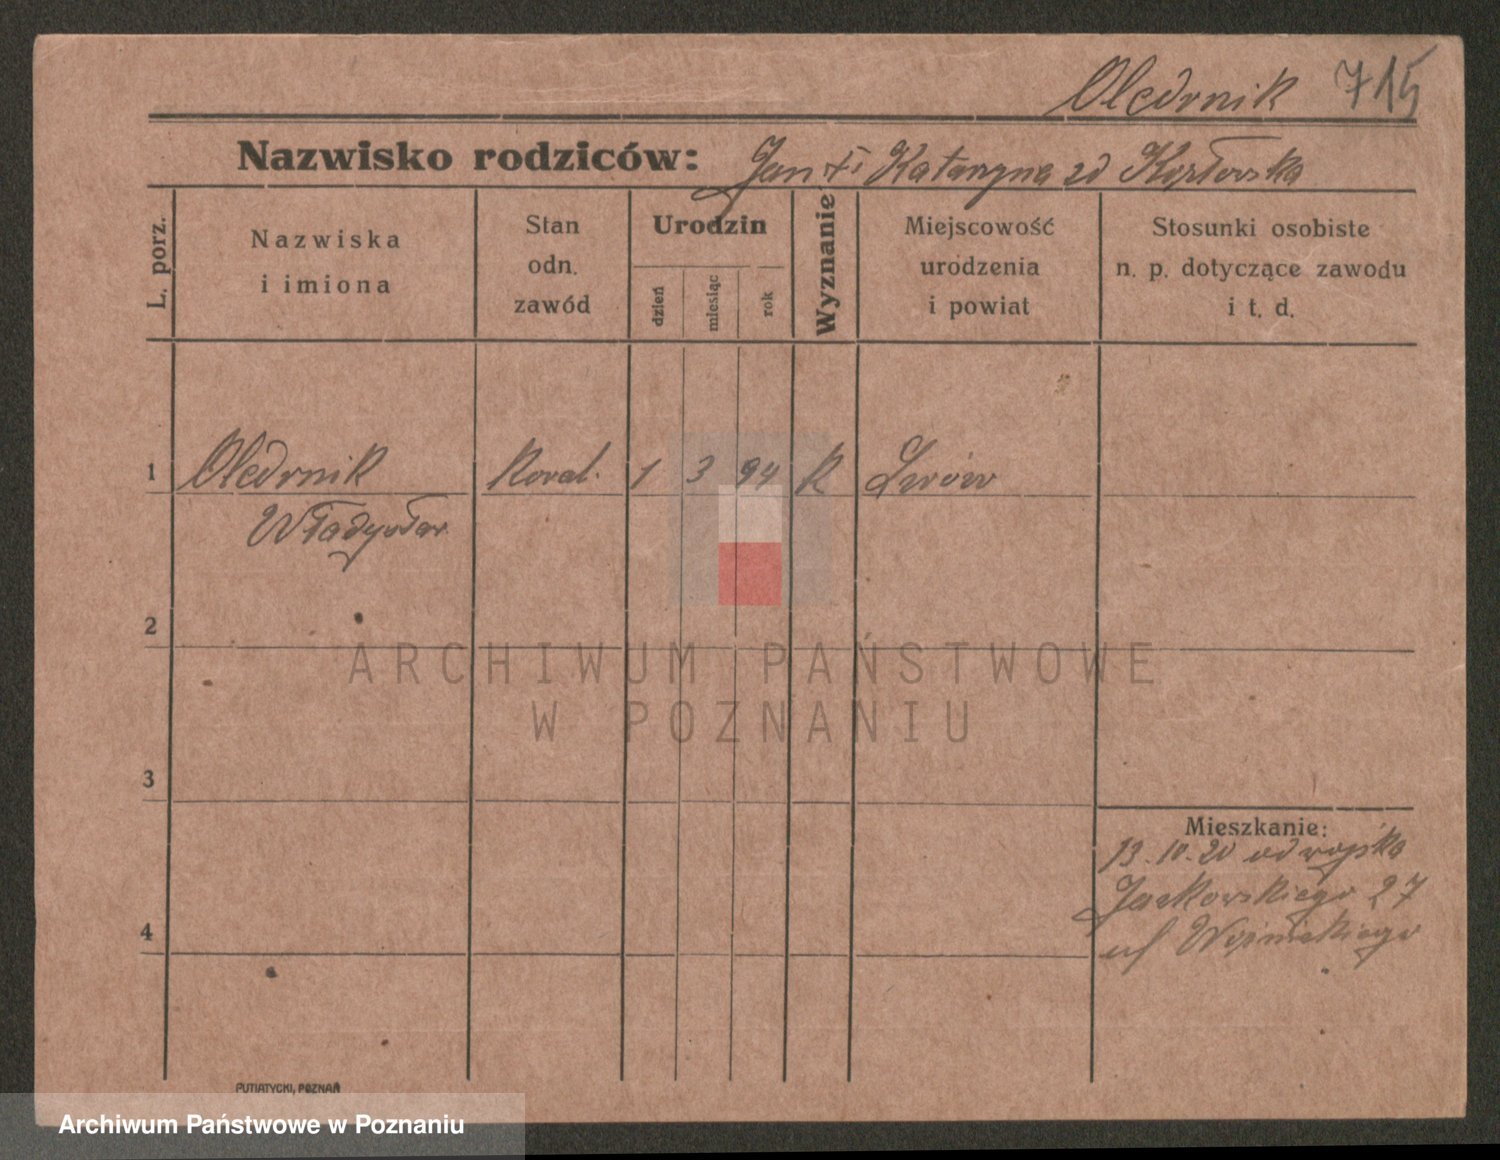 Oledrnik 715
Nazwisko rodziców: Jan Katarzyna zd Kozłowska
L. porz.
Nazwiska i imiona
Stan odn. zawód
Urodzin
dzień
miesiąc
rok
Wyznanie
Miejscowość urodzenia i powiat
Stosunki osobiste n. p. dotyczące zawodu i t. d.
1 Oledrnik Koval. 1 3 94 K Lwów
Władysław
2
ARCHIWUM PAŃSTWOWE
W POZNANIU
3
Mieszkanie:
13.10.20 od wojska
Jackowskiego 27
4
PUTIATYCKI, POZNAŃ
Archiwum Państwowe w Poznaniu